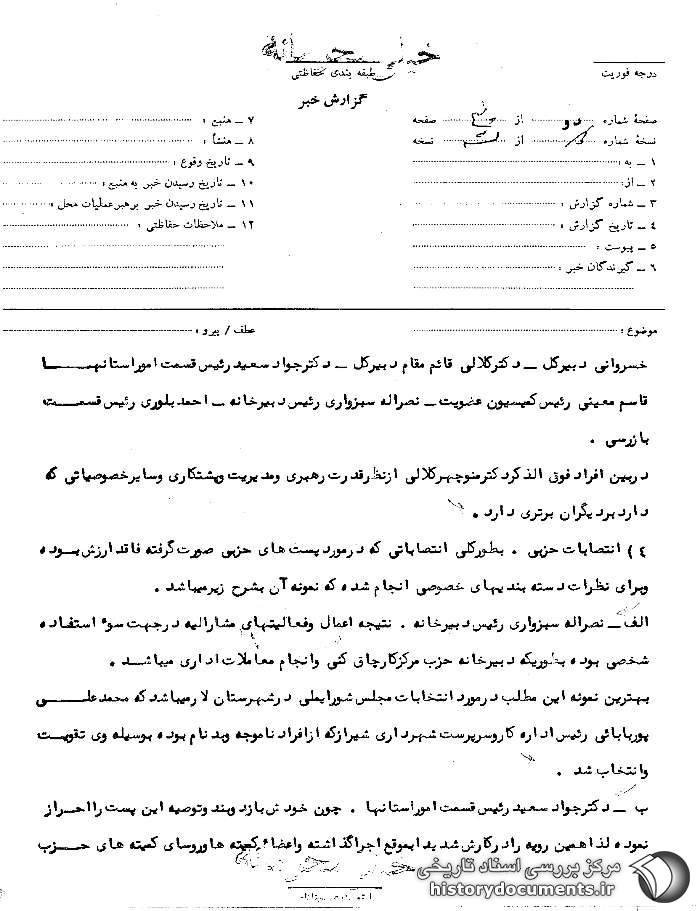 خیلی محرمانه
درجه فوریت
طبقه بندی حفاظتی
گزارش خبر
صفحهٔ شماره دو از صفحه
نسخهٔ شماره از نسخه
۱ ـ به :
۲ ـ از:
۳ ـ شماره گزارش :
۴ ـ تاریخ گزارش :
۵ ـ پیوست :
۶ ـ گیرندگان خبر :
۷ ـ منبع :
۸ ـ منشأ :
۹ ـ تاریخ وقوع :
۱۰ ـ تاریخ رسیدن خبر به منبع :
۱۱ ـ تاریخ رسیدن خبر برهبر عملیات محل :
۱۲ ـ ملاحظات حفاظتی :
موضوع :
عطف / پیرو :
خسروانی دبیرکل ــ دکترکلالی قائم مقام دبیرکل ــ دکترجواد سعید رئیس قسمت امور استانها
قاسم معینی رئیس کمیسیون عضویت ــ نصراله سبزواری رئیس دبیرخانه ــ احمد بلوری رئیس قسمت
بازرسی .
دربین افراد فوق الذکر دکترمنوچهرکلالی ازنظرقدرت رهبری ومدیریت وپشتکاری وسایرخصوصیاتی که
دارد بردیگران برتری دارد .
٤ ) انتصابات حزبی . بطورکلی انتصاباتی که درمورد پست های حزبی صورت گرفته فاقد ارزش بوده
وبرای نظرات دسته بندیهای خصوصی انجام شده که نمونه آن بشرح زیرمیباشد .
الف ــ نصراله سبزواری رئیس دبیرخانه . نتیجه اعمال وفعالیتهای مشارالیه درجهت سوء استفاده
شخصی بوده بطوریکه دبیرخانه حزب مرکزکارچاق کنی وانجام معاملات اداری میباشد .
بهترین نمونه این مطلب درمورد انتخابات مجلس شورایملی درشهرستان لارمیباشد که محمدعلی
پوربابائی رئیس اداره کاروسرپرست شهرداری شیرازکه ازافراد ناموجه وبدنام بوده بوسیله وی تقویت
وانتخاب شد .
ب ــ دکترجواد سعید رئیس قسمت امور استانها . چون خودش بازد وبند وتوصیه این پست را احراز
نموده لذا همین رویه را درکارش شدیدا بموقع اجراگذاشته واعضاء کمیته ها وروسای کمیته های حزب
مرکز بررسی اسناد تاریخی
historydocuments.ir